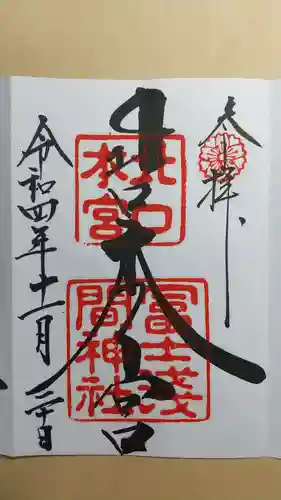 奉拝
北口本宮
北口
本宮
冨士浅
間神社
令和四年十一月二十日